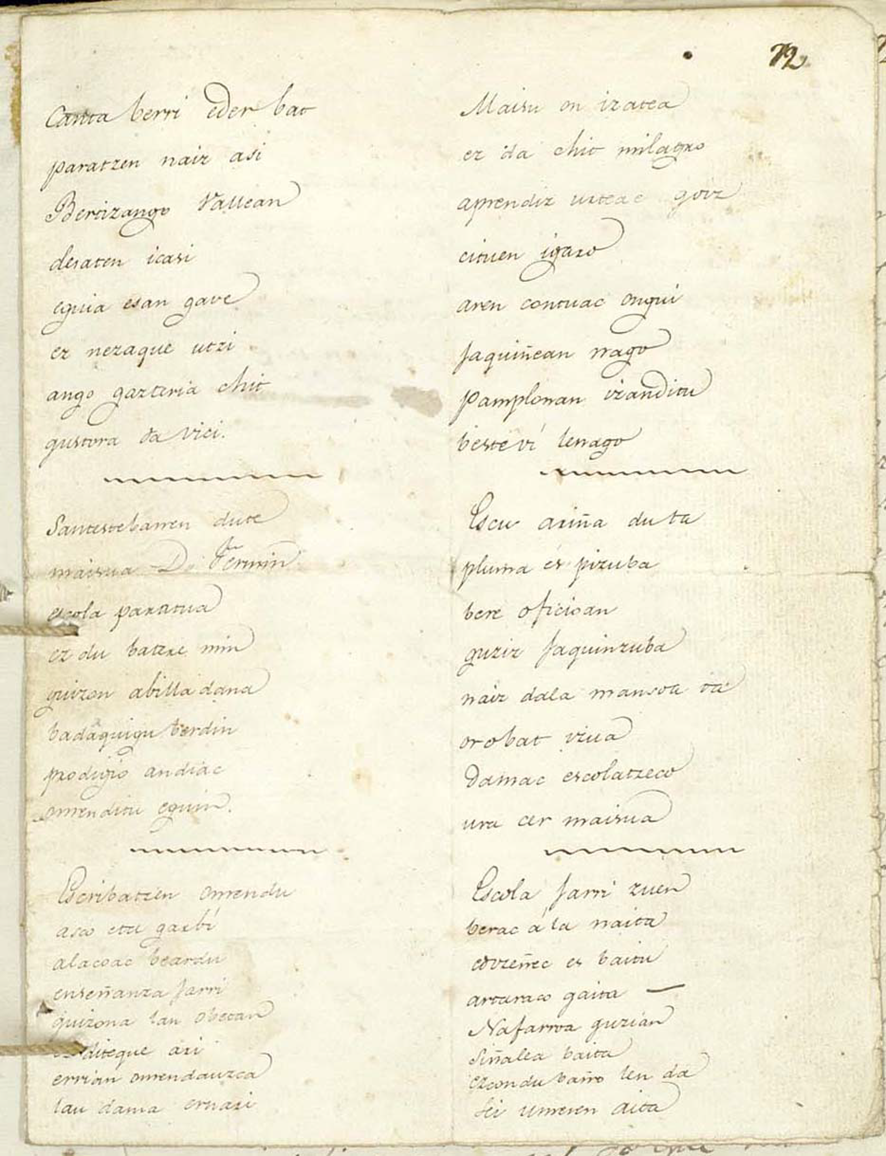 72.
Canta berri eder bat
paratzen naiz asi
Bertizango Vallean
desaten icasi
eguia esan gave
ez nezaque utzi
ango gazteria chit
gustora da vici.
Santestebarren dute
maisua D. Fermin
escola paratua
ez du batere min
guizon abilla dana
badaquigu berdin
prodigio andiac
omenditu eguin.
Escribatzen omendu
asco eta garbi
alacoac beardu
enseñanza jarri
guizona lan obetan
diteque ari
errian omendauzca
lau dama ernari
Maisu on izatea
ez da chit milagro
aprendiz urteac
cituen igaro
aren contuac ongui
jaquiñean nago
Pamplonan izanditu
beste vi lenago
Escu ariña du ta
pluma ez pizuba
bere oficioan
guziz jaquinzuba
naiz dala mansoa ta
orobat viva
Damac escolatzeco
ura cer maisua
Escola jarri zuen
berac a la naita
ez baitu
arturaco gaita
Nafarroa guzian
Siñalea baita
ezcondu baño len da
sei umeren aita